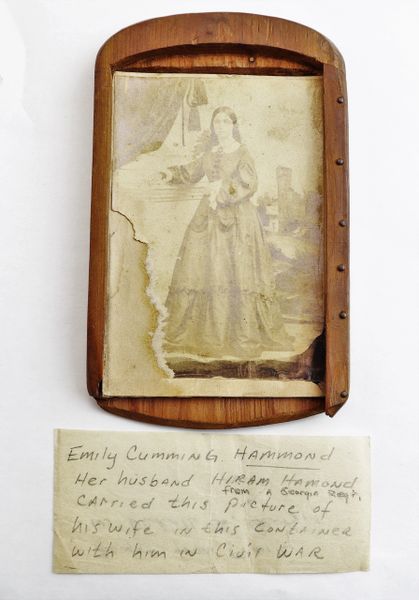 Emily Cumming HAMMOND
Her husband HIRAM HAMOND
from a Georgia Regt.
CARRIED this picture of
his wife in this CONTAINER
with him in CIVIL WAR